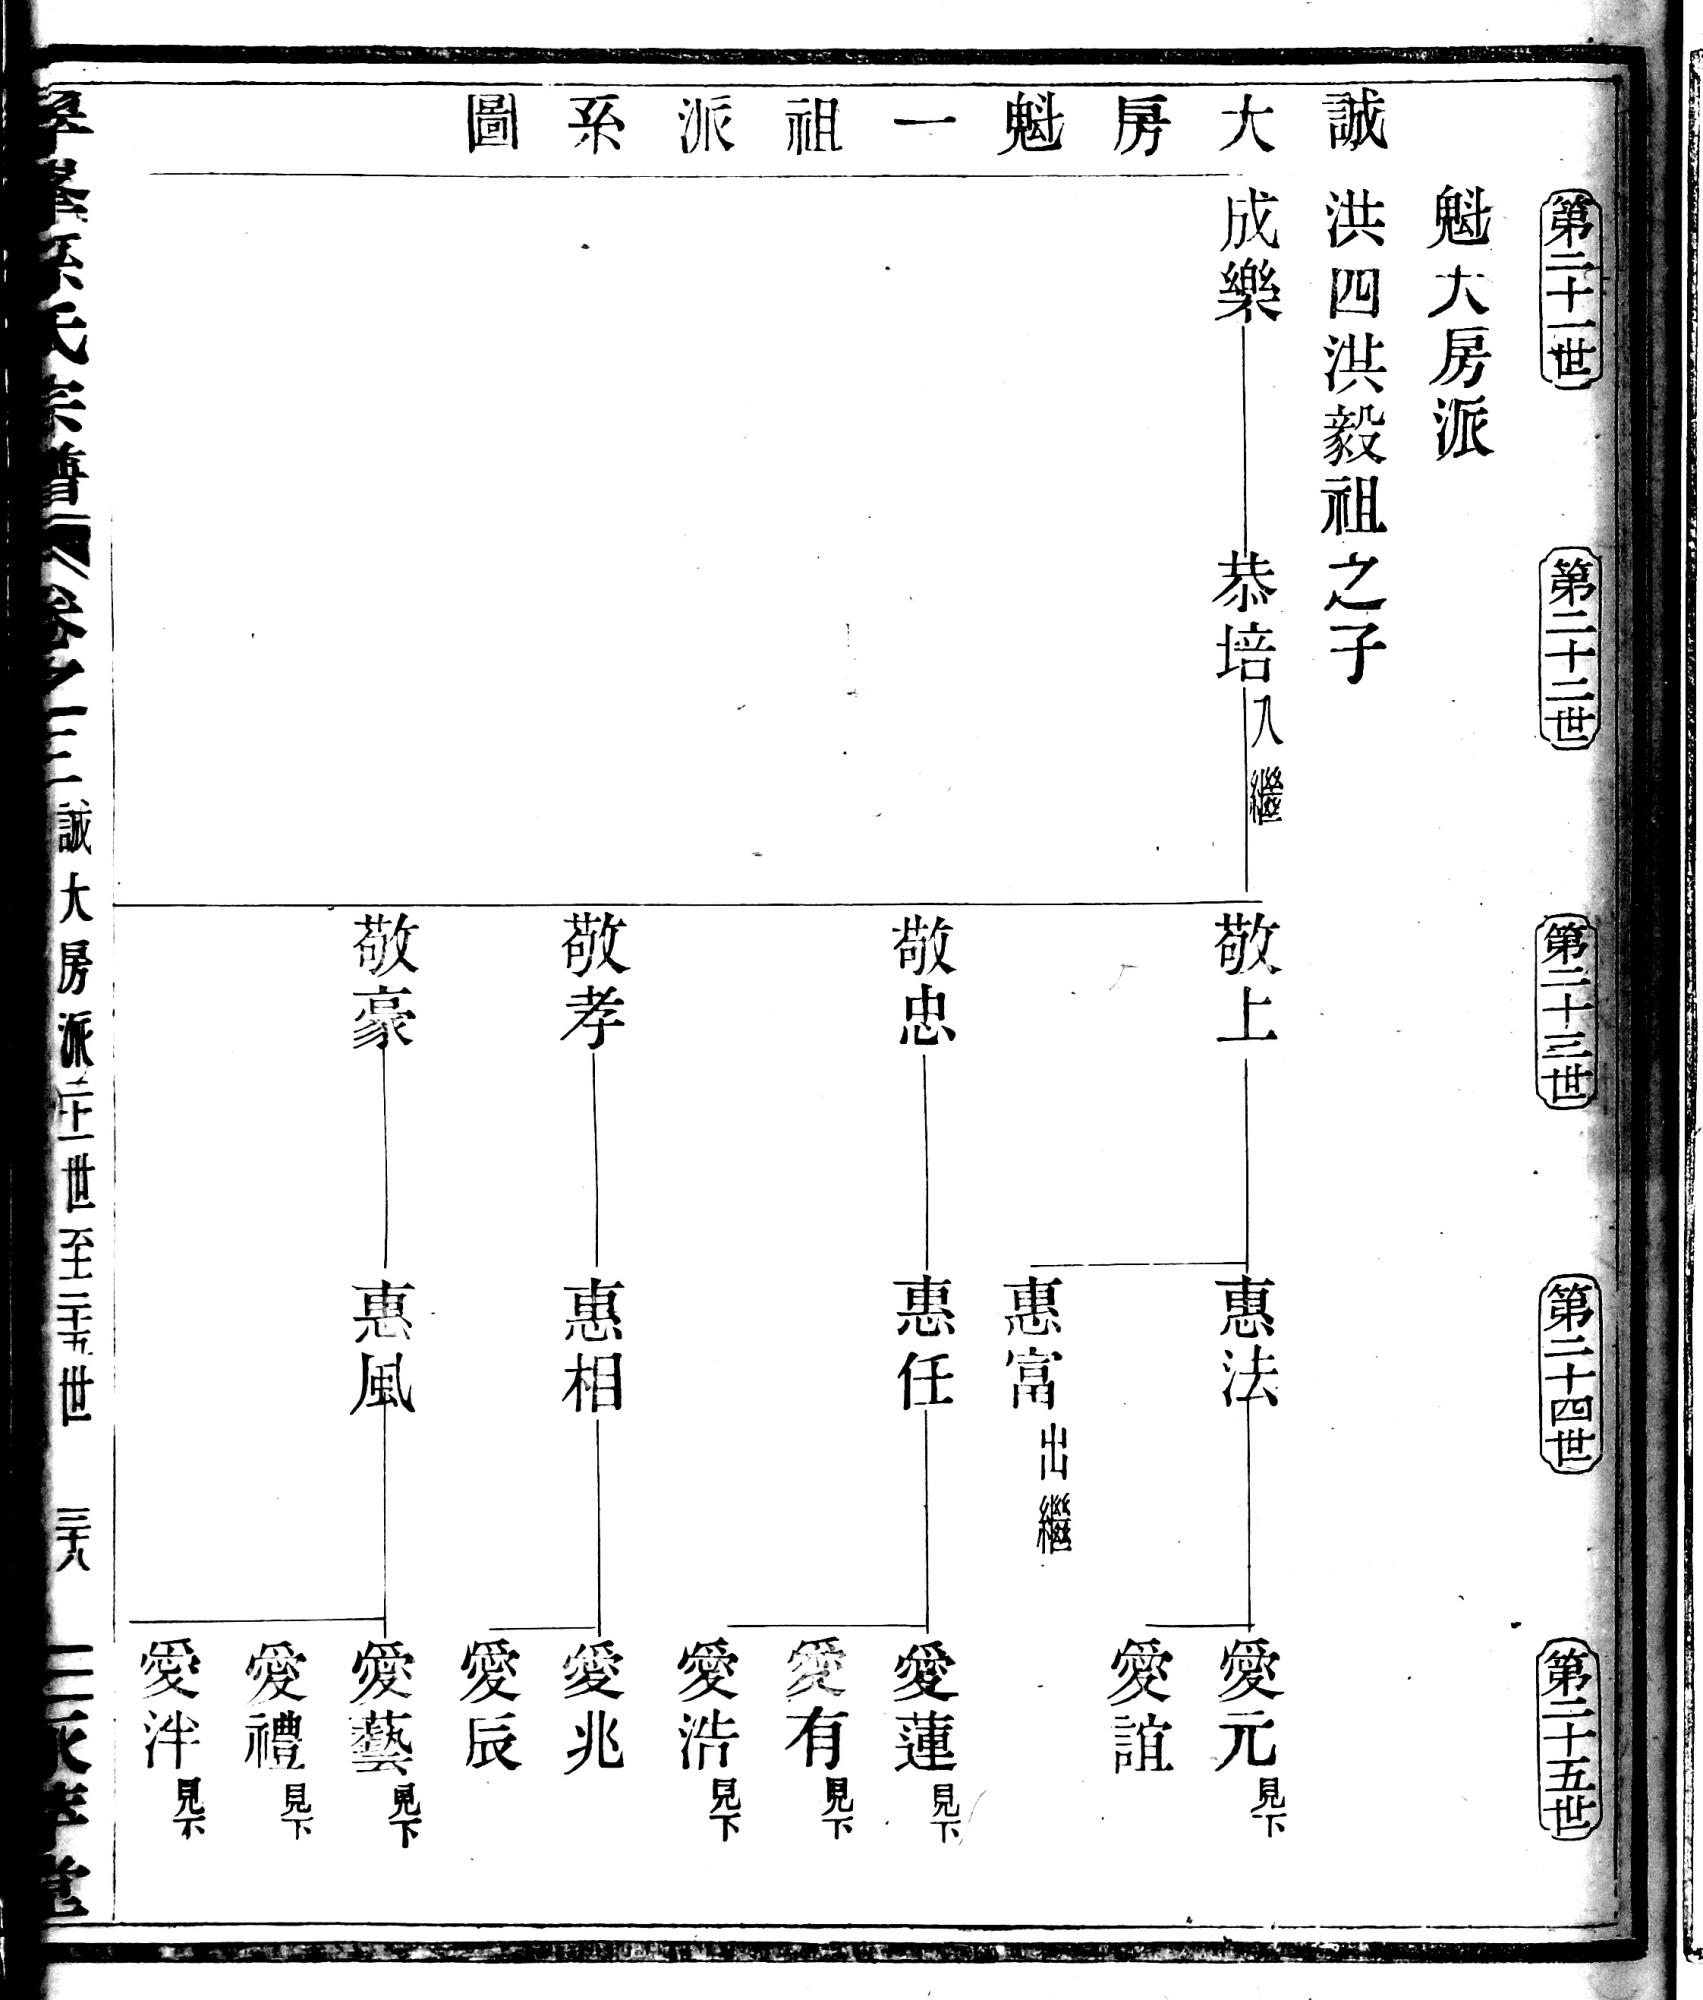 誠大房魁一祖派系圖
第二十一世
第二十二世
第二十三世
第二十四世
第二十五世
魁大房派
洪四洪毅祖之子
成樂
恭培入繼
敬上
惠法
愛元見下
愛誼
惠富出繼
敬忠
惠任
愛蓮見下
愛有見下
愛浩見下
敬孝
惠相
愛兆
愛辰
敬豪
惠風
愛藝見下
愛禮見下
愛泮見下
孫氏宗譜
卷之三
誠大房派二十一世至二十五世
三十八